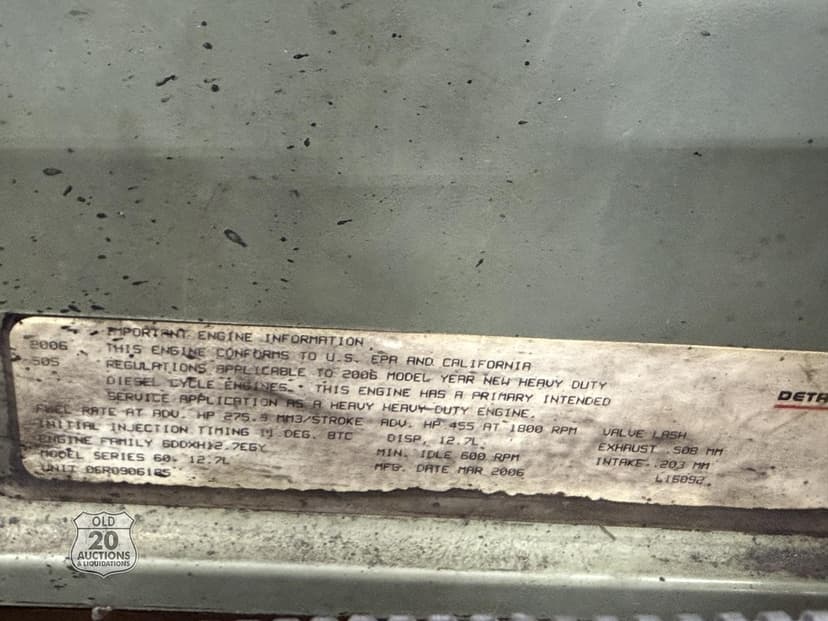 IMPORTANT ENGINE INFORMATION
2006 THIS ENGINE CONFORMS TO U.S. EPA AND CALIFORNIA
505 REGULATIONS APPLICABLE TO 2006 MODEL YEAR NEW HEAVY DUTY
DIESEL CYCLE ENGINES. THIS ENGINE HAS A PRIMARY INTENDED
SERVICE APPLICATION AS A HEAVY HEAVY-DUTY ENGINE.
FUEL RATE AT ADV. HP 275.9 MM3/STROKE ADV. HP 455 AT 1800 RPM VALVE LASH
INITIAL INJECTION TIMING DEG. BTC DISP. 12.7L EXHAUST .508 MM
ENGINE FAMILY 6DDXH12.7EGY MIN. IDLE 600 RPM INTAKE .203 MM
MODEL SERIES 60. 12.7L MFG. DATE MAR 2006 L16092
UNIT 06R0906185
DETR
OLD
20
AUCTIONS
& LIQUIDATIONS